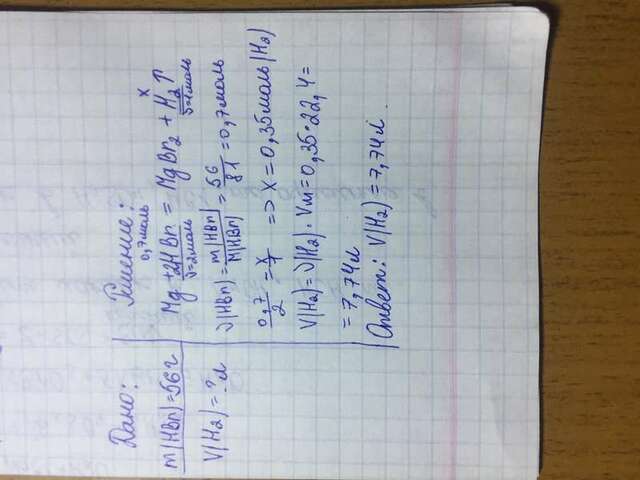 Дано:
m(HBr)=56г
V(H₂)=?л
Решение:
0,7моль
x
Mg + 2HBr = MgBr₂ + H₂↑
ν=2моль
ν=1моль
ν(HBr)=m(HBr)/M(HBr)=56/81=0,7моль
0,7/2=x/1 => X=0,35моль(H₂)
V(H₂)=ν(H₂)·Vm=0,35·22,4=
=7,74л
Ответ: V(H₂)=7,74л.